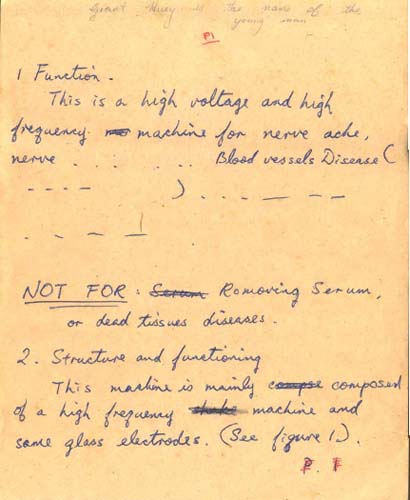 Grant Huey is the name of the
young man
P1
1 Function.
This is a high voltage and high
frequency machine for nerve ache,
nerve . . . . . . Blood vessels Disease (
- - - - ) . - - - - -
- . - - -
NOT FOR : Serum Romoving Serum,
or dead tissues diseases.
2. Structure and functioning
This mashine is mainly compse composed
of a high frequency machine and
some glass electrodes. (See figure 1).